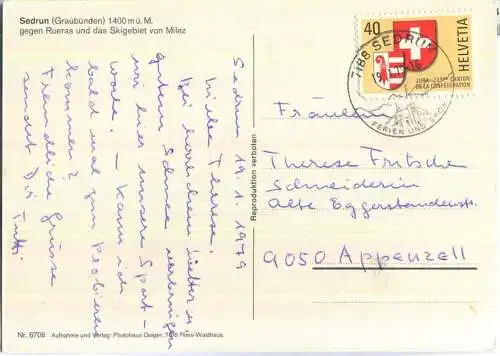 Sedrun (Graubünden) 1400 m ü. M.
gegen Rueras und das Skigebiet von Milez
Sedrun 19.1.1979
Liebe Therese.
Bei herrlichem Wetter u.
gutem Schnee verbringen
wir hier unsere Sport-
woche. – Kann ich
bald mal zum Probieren
kommen?
Freundliche Grüsse
sendet Dir
Nr. 6708 Aufnahme und Verlag: Photohaus Geiger, 7018 Flims-Waldhaus
Reproduktion verboten
40
HELVETIA
JURA-23ME CANTON
DE LA CONFEDERATION
7188 SEDRUN
FERIEN UND
Fräulein
Therese Fritsche
Schneiderin
Alte Eggerstandenstr.
9050 Appenzell